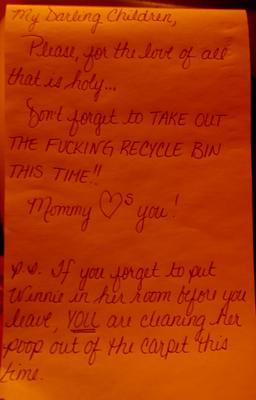 My Darling Children,
Please, for the love of all
that is holy...
Don't forget to TAKE OUT
THE FUCKING RECYCLE BIN
THIS TIME!!
Mommy ♡s you!
p.s. If you forget to put
Winnie in her room before you
leave, YOU are cleaning her
poop out of the carpet this
time.